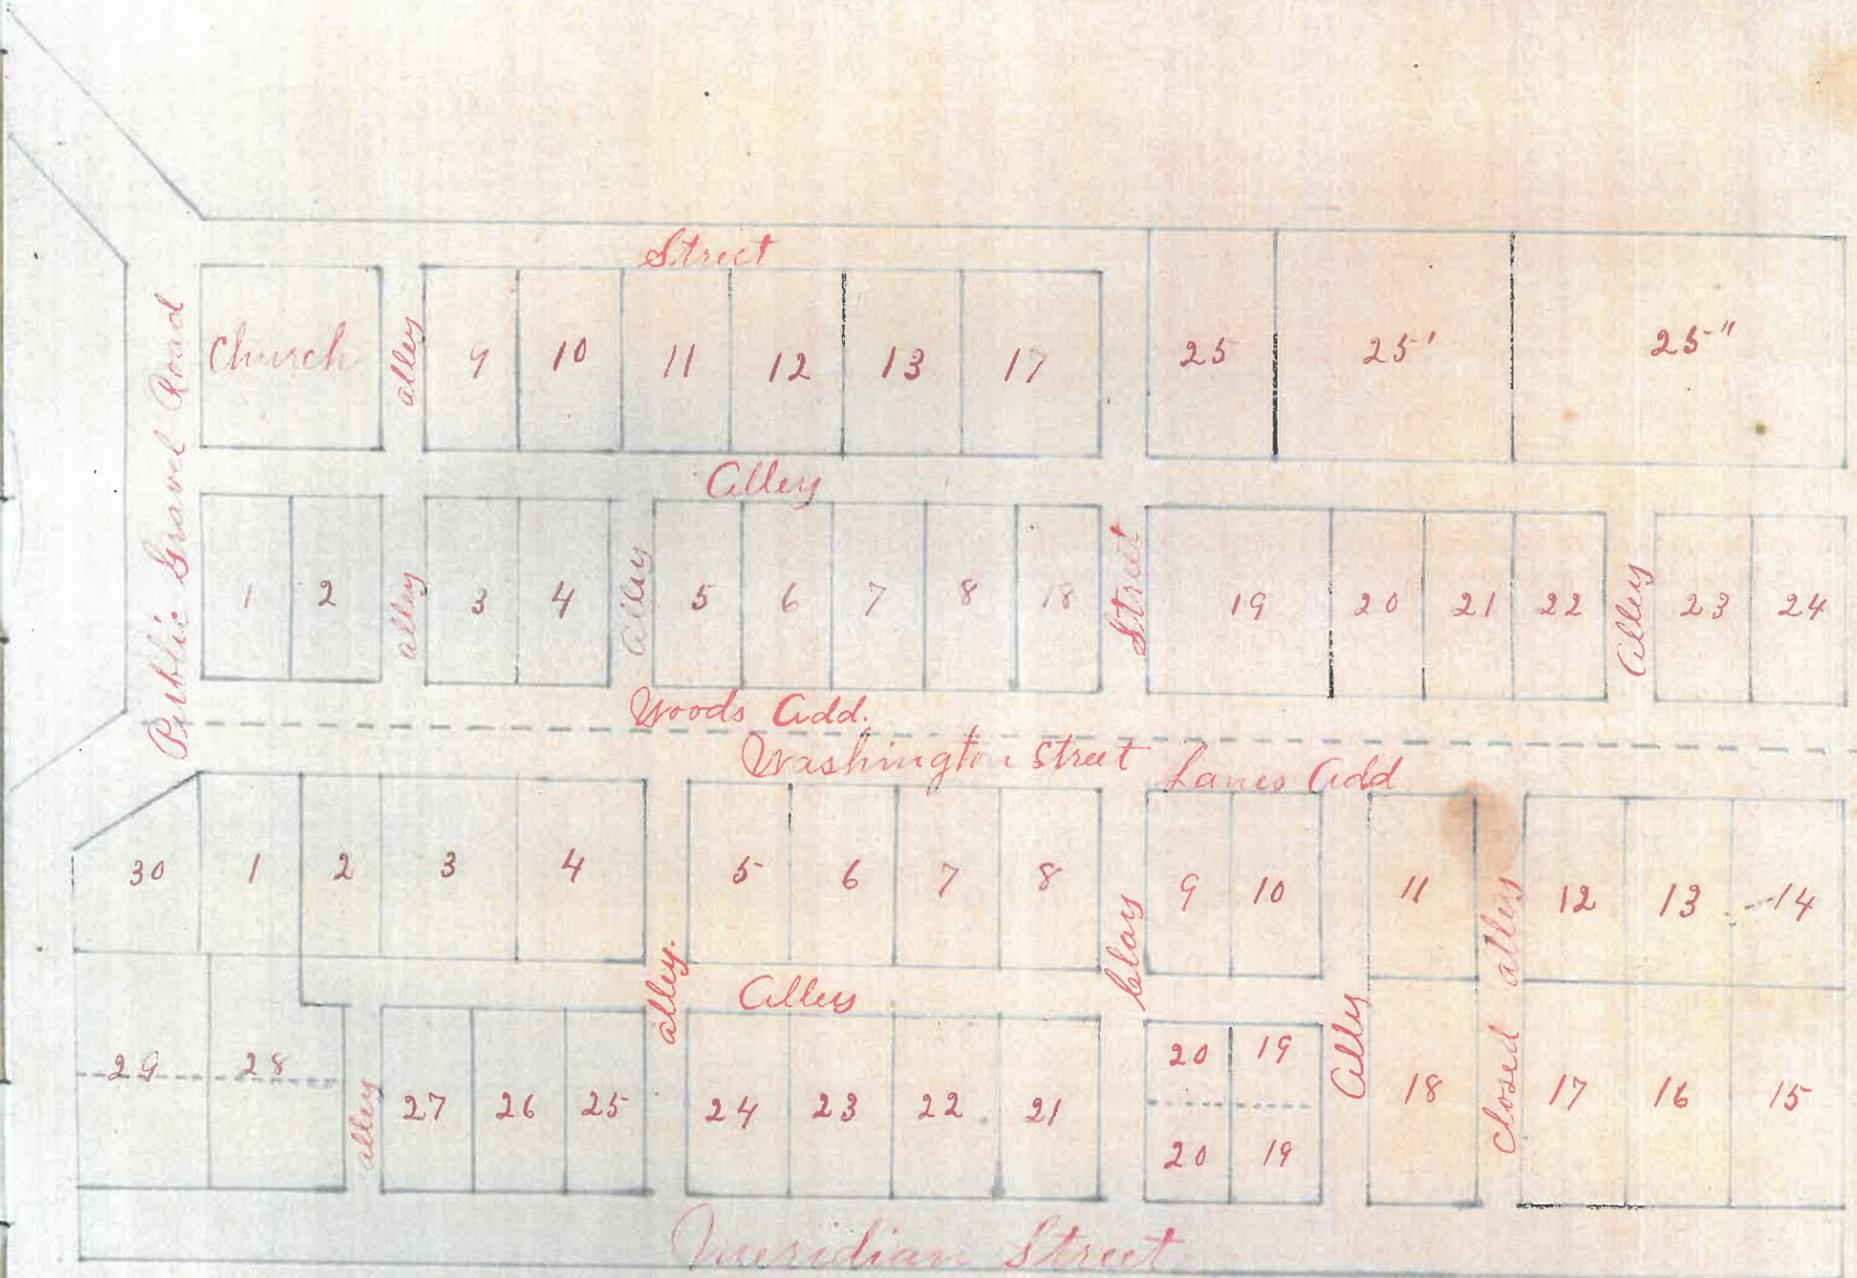 Street
Public Gravel Road
Church
alley
9 10 11 12 13 17
25 25' 25"
Alley
1 2
alley
3 4
Alley
5 6 7 8 18
Street
19 20 21 22
Alley
23 24
Woods Add.
Washington Street
Lanes Add
30 1 2 3 4
5 6 7 8
9 10
11
12 13 14
alley.
Alley
Clay
Alley
Closed alley
29 28
alley
27 26 25
24 23 22 21
20 19
20 19
18
17 16 15
Meridian Street